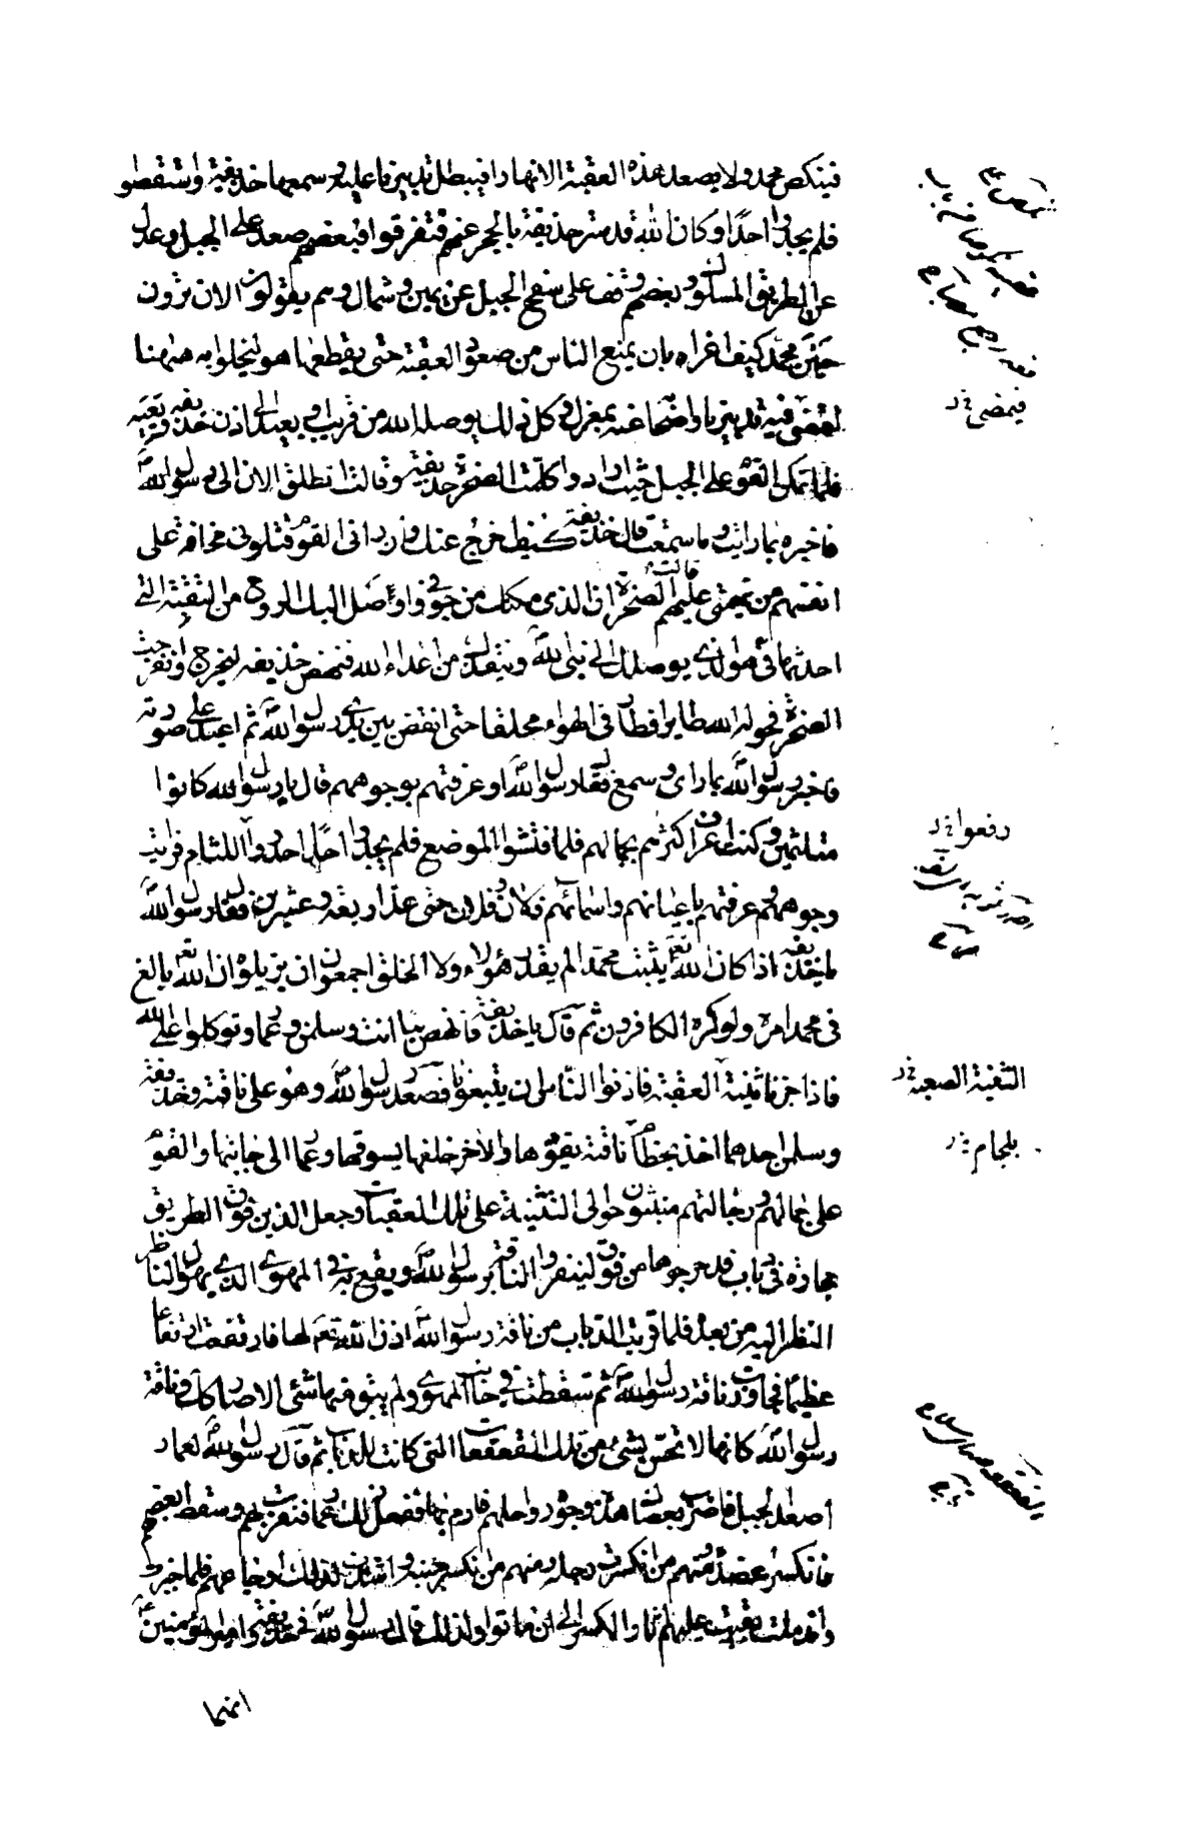 فينكص محمد ولا يصعد هذه العقبة الا نهارا فيبطل تدبيرنا عليه وسمعها حذيفة واستقصوا
فلم يجدوا احدا وكان الله قد ستر حذيفة بالحجر عنهم فتفرقوا فبعضهم صعد على الجبل وعدل
عن الطريق المسلوك وبعضهم وقف على سفح الجبل عن يمين وشمال وهم يقولون الان ترون
حين محمد كيف اغراه بان يمنع الناس من صعود العقبة حتى يقطعها هو ليخلوا به هيهنا
لنمضى فيه تدبيرنا واصحابه عنه بمعزل وكل ذلك يوصله الله من قريب او بعيد الى اذن حذيفة ويعيه
فلما تمكن القوم على الجبل حيث ارادوا كلمت الصخرة حذيفة وقالت انطلق الان الى رسول الله
فاخبره بما رايت وما سمعت قال حذيفة كيف اخرج عنك وان رانى القوم قتلونى مخافة على
انفسهم من نميمتى عليهم قالت الصخرة ان الذى مكنك من جوفى واوصل اليك الروح من الثقبة التى
احدثها فى هو الذى يوصلك الى نبى الله وينقذك من اعداء الله فنهض حذيفة ليخرج وانفرجت
الصخرة فحوله الله طايرا فطار فى الهواء محلقا حتى انقض بين يدى رسول الله ثم اعيد على صورته
فاخبر رسول الله بما راى وسمع فقال رسول الله اوعرفتهم بوجوههم قال يا رسول الله كانوا
متلثمين وكنت اعرف اكثرهم بجمالهم فلما فتشوا الموضع فلم يجدوا احدا احدروا اللثام فرايت
وجوههم وعرفتهم باعيانهم واسمائهم فلان وفلان حتى عد اربعة وعشرين فقال رسول الله
يا حذيفة اذا كان الله يثبت محمدا لم يقدر هؤلاء ولا الخلق اجمعون ان يزيلوه ان الله تعالى بالغ
فى محمد امره ولو كره الكافرون ثم قال يا حذيفة فانهض بنا انت وسلمن وعمار وتوكلوا على الله
فاذا جزنا ثنية العقبة فاذنوا للناس ان يتبعونا فصعد رسول الله وهو على ناقته وحذيفة
وسلمن احدهما اخذ بخطام ناقته يقودها والاخر خلفها يسوقها وعمار الى جانبها والقوم
على جمالهم ورجالتهم منبثون حوالى الثنية على تلك العقبات وجعل الذين فوق الطريق
حجارة فى دباب فدحرجوها من فوق لينفروا الناقة برسول الله ويقع به فى المهوى الذى يهول الناظر
النظر اليه من بعده فلما قربت الدباب من ناقة رسول الله اذن الله تعالى لها فارتفعت ارتفاعا
عظيما فجاوزت ناقة رسول الله ثم سقطت فى جانب المهوى ولم يبق منها شئ الا صار كذلك وناقة
رسول الله كانها لا تحس بشئ من تلك القعقعات التى كانت للدباب ثم قال رسول الله لعمار
اصعد الجبل فاضرب بعصاك هذه وجوه رواحلهم فارم بها ففعل ذلك عمار فنفرت بهم وسقط بعضهم
فانكسر عضده ومنهم من انكسرت رجله ومنهم من انكسر جنبه واشتدت لذلك اوجاعهم فلما جبرت
واندملت بقيت عليهم اثار الكسر الى ان ماتوا ولذلك قال رسول الله فى حذيفة وامير المؤمنين
انهما
فيمضى خ ر
دفعوا خ ر
الثنية الصعبة خ ر
بلجام خ ر